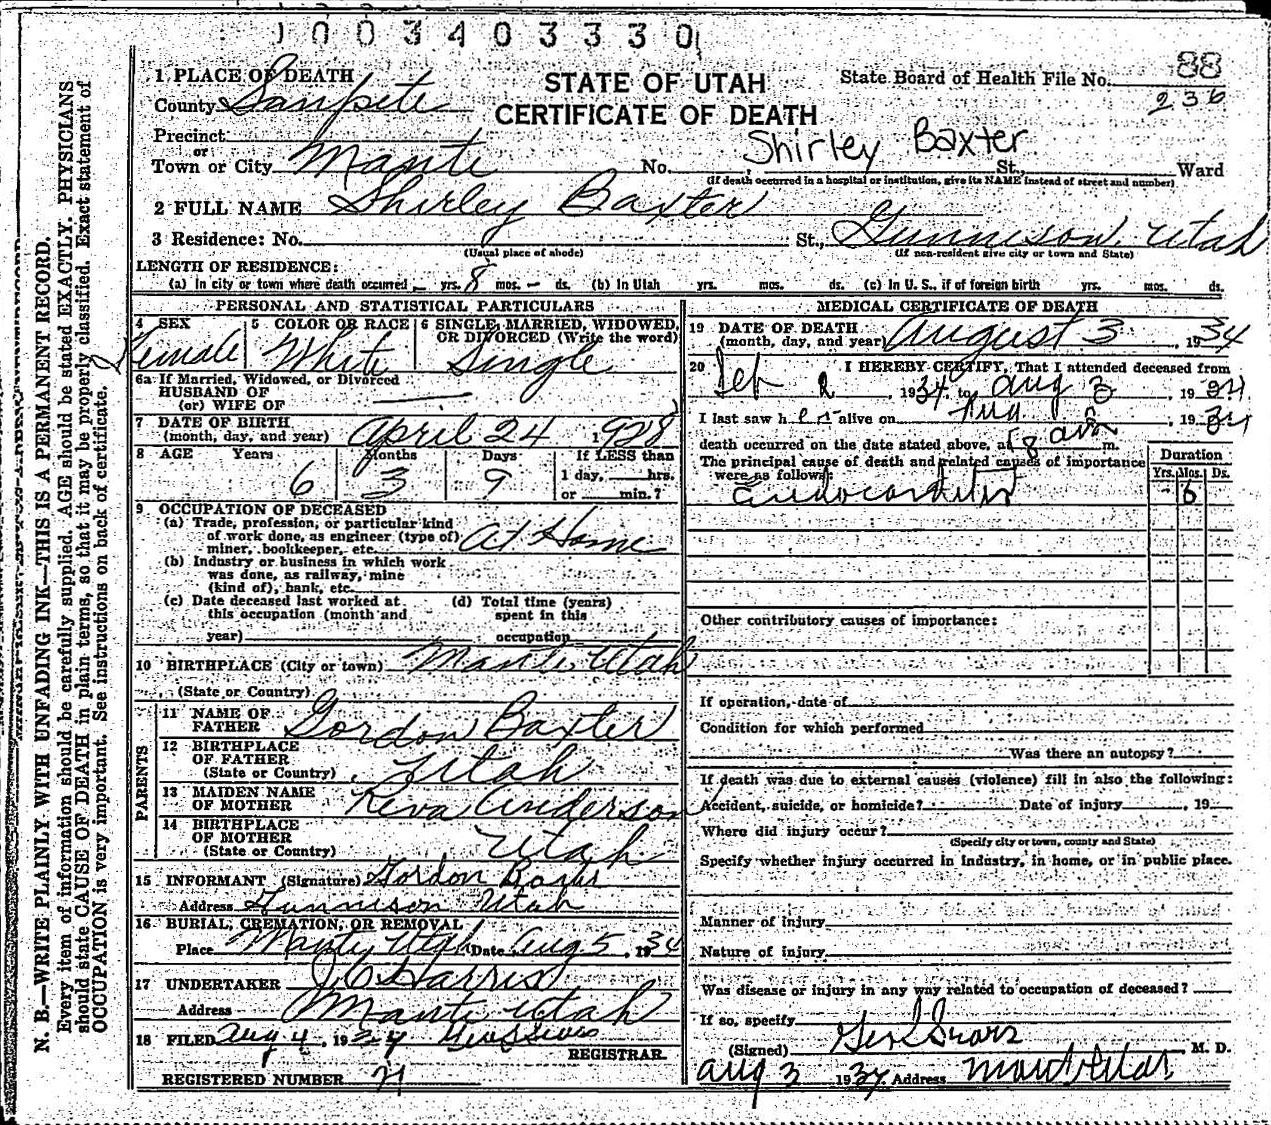 1 0 0 3 4 0 3 3 3 0
1 PLACE OF DEATH
County Sanpete
STATE OF UTAH
CERTIFICATE OF DEATH
State Board of Health File No. 88
236
Precinct
or
Town or City Manti No. Shirley Baxter St., Ward
(If death occurred in a hospital or institution, give its NAME instead of street and number)
2 FULL NAME Shirley Baxter
3 Residence: No. St., Gunnison, Utah
(Usual place of abode) (If non-resident give city or town and State)
LENGTH OF RESIDENCE:
(a) In city or town where death occurred — yrs. 8 mos. — ds. (b) In Utah yrs. mos. ds. (c) In U. S., if of foreign birth yrs. mos. ds.
PERSONAL AND STATISTICAL PARTICULARS
4 SEX Female
5 COLOR OR RACE White
6 SINGLE, MARRIED, WIDOWED, OR DIVORCED (Write the word) Single
6a If Married, Widowed, or Divorced
HUSBAND OF
(or) WIFE OF
7 DATE OF BIRTH
(month, day, and year) April 24 1928
8 AGE Years Months Days If LESS than
6 3 9 1 day, hrs.
or min.?
9 OCCUPATION OF DECEASED
(a) Trade, profession, or particular kind
of work done, as engineer (type of) At Home
miner, bookkeeper, etc.
(b) Industry or business in which work
was done, as railway, mine
(kind of), bank, etc.
(c) Date deceased last worked at
this occupation (month and
year)
(d) Total time (years)
spent in this
occupation
10 BIRTHPLACE (City or town) Manti, Utah
(State or Country)
PARENTS
11 NAME OF
FATHER Gordon Baxter
12 BIRTHPLACE
OF FATHER
(State or Country) Utah
13 MAIDEN NAME
OF MOTHER Reva Anderson
14 BIRTHPLACE
OF MOTHER
(State or Country) Utah
15 INFORMANT (Signature) Gordon
Address Gunnison Utah
16 BURIAL, CREMATION, OR REMOVAL
Place Manti, Utah Date Aug 5, 1934
17 UNDERTAKER J C Harris
Address Manti Utah
18 FILED Aug 4, 1934
REGISTRAR.
REGISTERED NUMBER 21
MEDICAL CERTIFICATE OF DEATH
19 DATE OF DEATH
(month, day, and year) August 3, 1934
20 I HEREBY CERTIFY, That I attended deceased from
Feb 2 1934, to Aug 3, 1934
I last saw her alive on Aug 3, 1934
death occurred on the date stated above, at 8 a m.
The principal cause of death and related causes of importance
were as follows:
Endocarditis
Duration
Yrs. Mos. Ds.
- 6
Other contributory causes of importance:
If operation, date of
Condition for which performed
Was there an autopsy?
If death was due to external causes (violence) fill in also the following:
Accident, suicide, or homicide? Date of injury , 19
Where did injury occur?
(Specify city or town, county and State)
Specify whether injury occurred in industry, in home, or in public place.
Manner of injury
Nature of injury
Was disease or injury in any way related to occupation of deceased?
If so, specify
(Signed) Geo L Sears M. D.
Aug 3 1934 Address Manti Utah
N. B.—WRITE PLAINLY WITH UNFADING INK—THIS IS A PERMANENT RECORD.
Every item of information should be carefully supplied. AGE should be stated EXACTLY. PHYSICIANS
should state CAUSE OF DEATH in plain terms, so that it may be properly classified. Exact statement of
OCCUPATION is very important. See instructions on back of certificate.